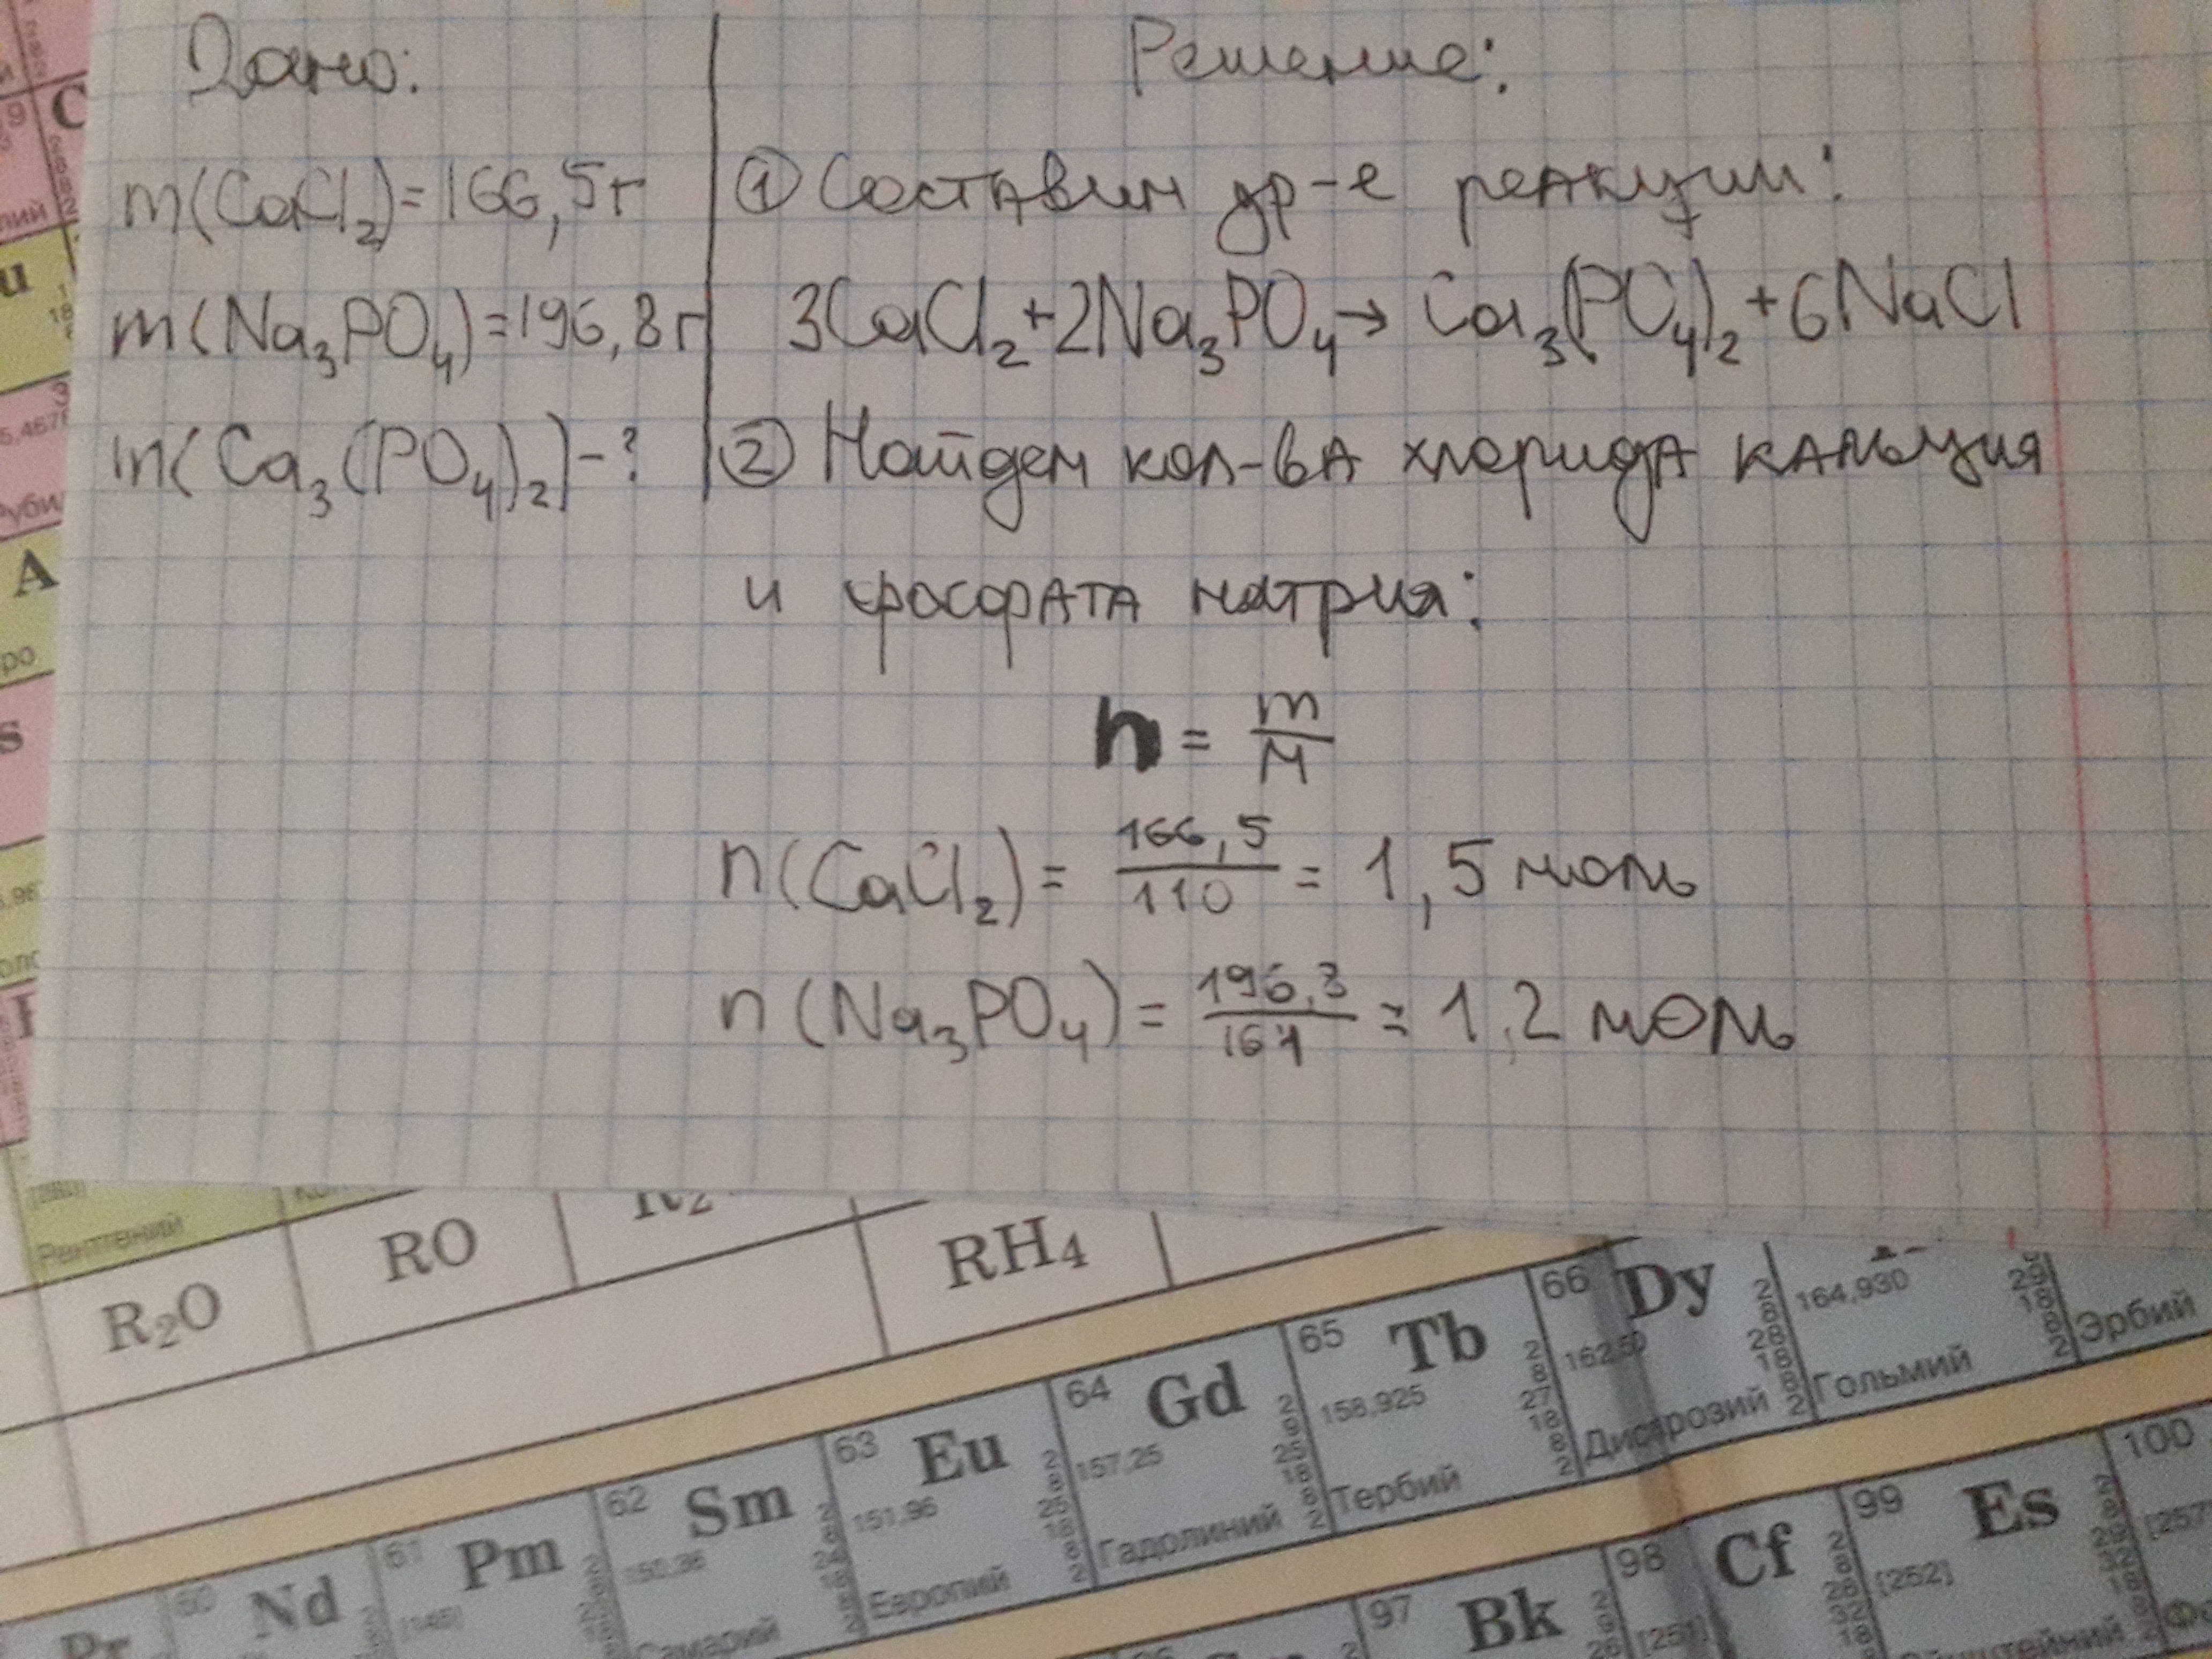 Дано:
Решение:
m(CaCl₂)=166,5г
① Составим ур-е реакции:
m(Na₃PO₄)=196,8г
3CaCl₂+2Na₃PO₄→ Ca₃(PO₄)₂+6NaCl
m(Ca₃(PO₄)₂)-?
② Найдем кол-ва хлорида кальция
и фосфата натрия:
n = m/M
n(CaCl₂) = 166,5/110 = 1,5 моль
n(Na₃PO₄) = 196,8/164 = 1,2 моль
Рентгений
R₂O
RO
RH₄
60 Nd
61 Pm [145]
62 Sm 150,36 Самарий
63 Eu 151,96 Европий
64 Gd 157,25 Гадолиний
65 Tb 158,925 Тербий
66 Dy 162,50 Диспрозий
164,930 Гольмий
Эрбий
97 Bk
98 Cf [251]
99 Es [252]
100 [257]